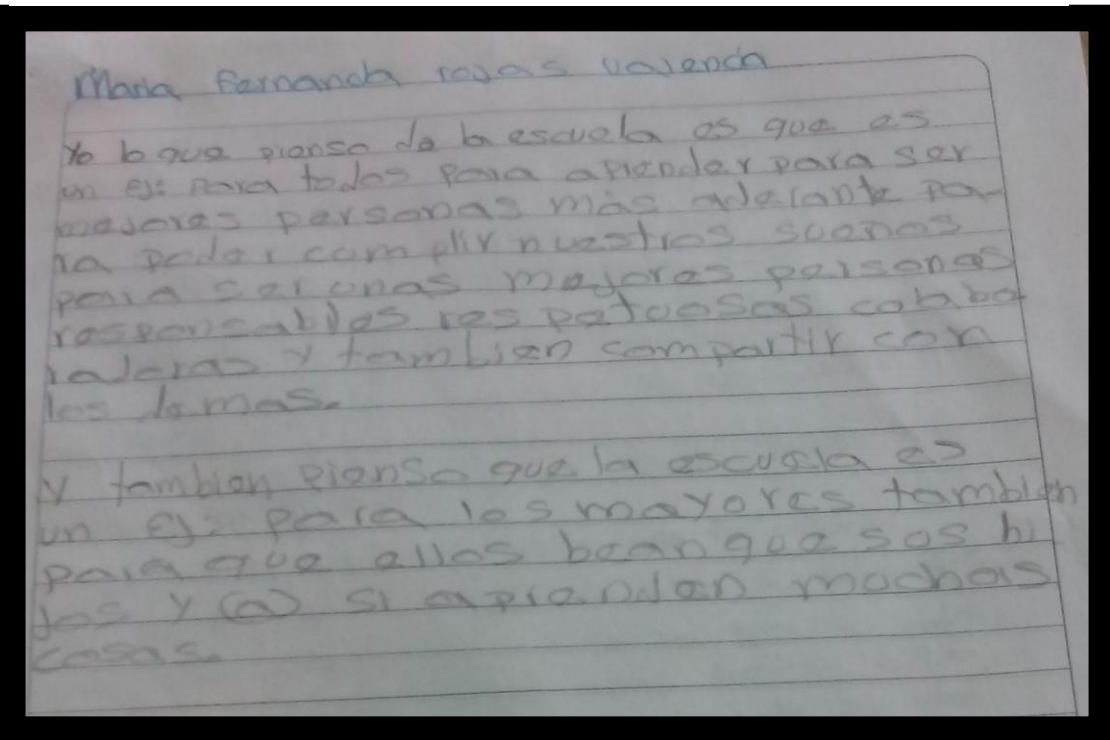 Maria Fernanda rojas valencia
Yo lo que pienso de la escuela es que es
un ej: para todos para aprender para ser
mejores personas más adelante pa
ra poder complir nuestros suenos
para ser unas mejores personas
responsables respetuosas colabo
radoras y tambien compartir con
los demas.
y tambien pienso que la escuela es
un ej: para los mayores tambien
para que ellos bean que sos hi
jos y (a) si aprenden muchas
cosas.